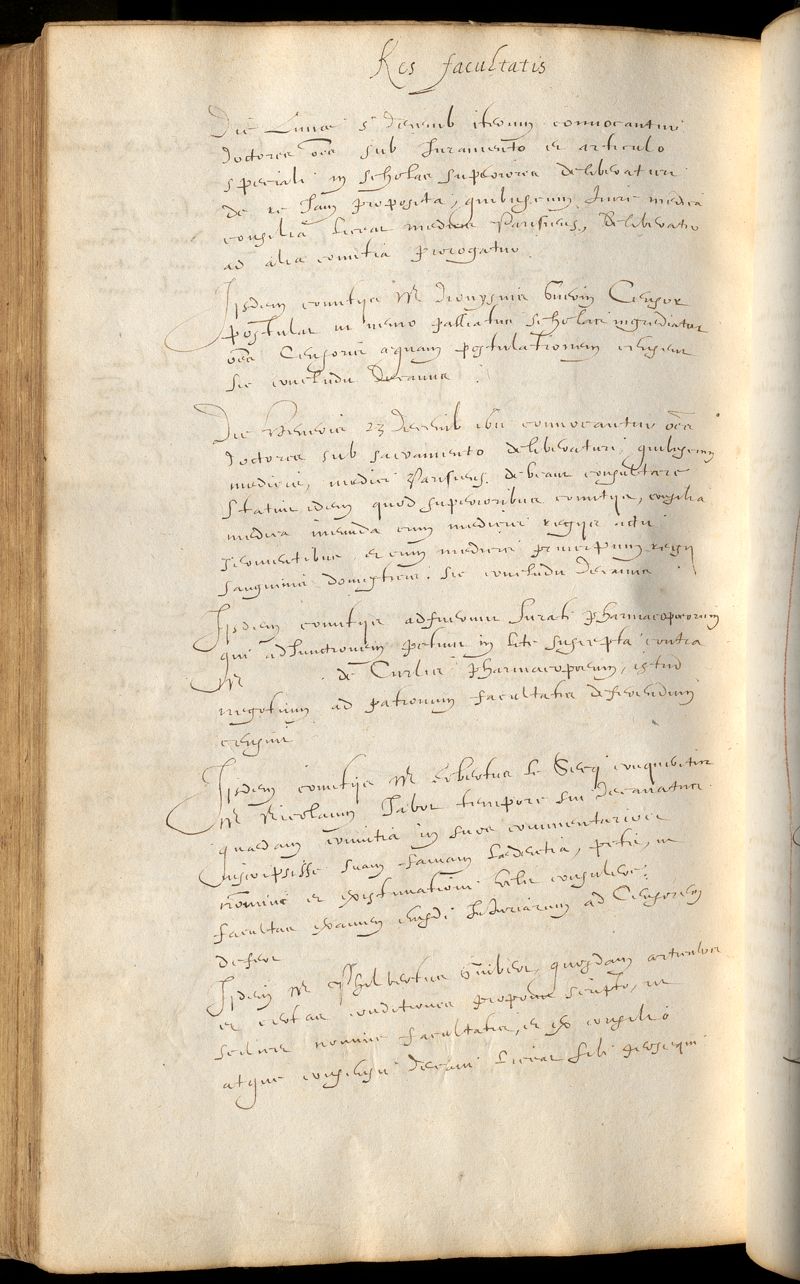 Res facultatis
Die Lunae 5 Decemb iterum convocantur
doctores oēs sub Juramento et articulo
speciali in scholas superiores deliberaturi
de re Jam proposita, quibuscum Inire medica
consilia liceat medicis Parisiens. Deliberatio
ad alia comitia prorogatur.
Ipsdem comitijs M Dionysius Guerin Censor
postulat ut nemo palliatus scholas ingrediatur
oēs Censores aequam postulationem censent
sic concludit Decanus.
Die Veneris 23 Decemb ibid convocantur oēs
doctores sub sacramento deliberaturi, quibuscum
medicis, medici Parisiens. debeant consultare
statuunt idem quod superioribus comitijs, consilia
medica ineunda cum medicis regijs actu
servientibus, et cum medicis principum regij
sanguinis domesticis. sic concludit Decanus
Ipsdem comitijs adfuerunt Jurati pharmacopoeorum
qui adjunctionem petunt in lite suscepta contra
M de Curlis pharmacopoeum, istud
negotium ad patronum facultatis deferendum
censent
Ipsdem comitijs M le
M Nicolaum Jabot tempore sui Decanatus
quaedam comitia in suos commentarios
inscripsisse suam famam laedentia, petit, ut
nomini et existimationi velit consulere:
facultas examen Injuriarum ad Censorem
defert
Ipsdem M Philbertus Guibert, quosdam articulos
et certas conditiones proponit scripto, ut
scilicet nomine facultatis, et ex consilio
atque consensu decani liceat sibi prosequi